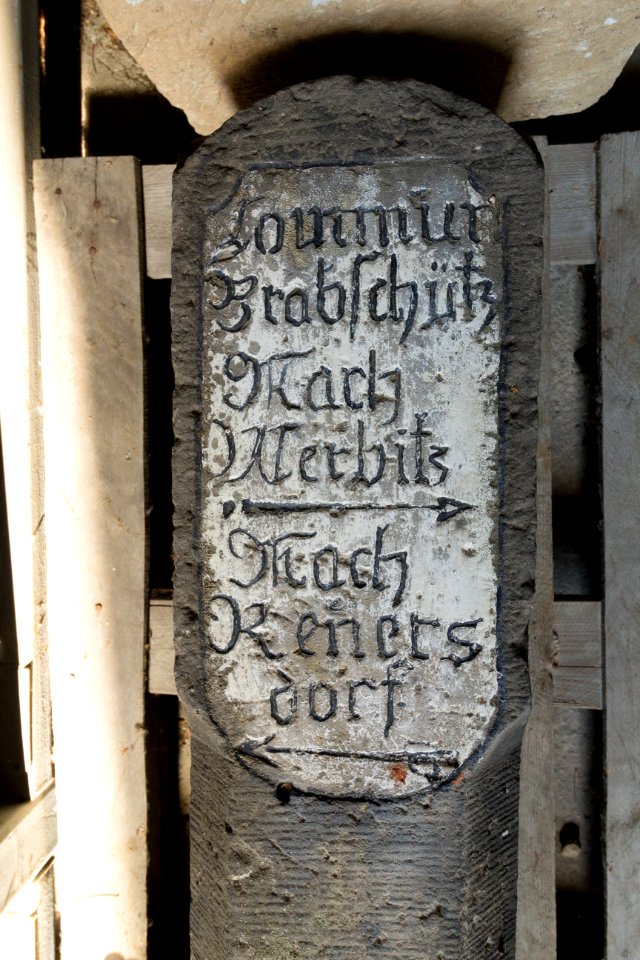 Commun
Brabschütz
Nach
Merbitz
Nach
Reñers
dorf